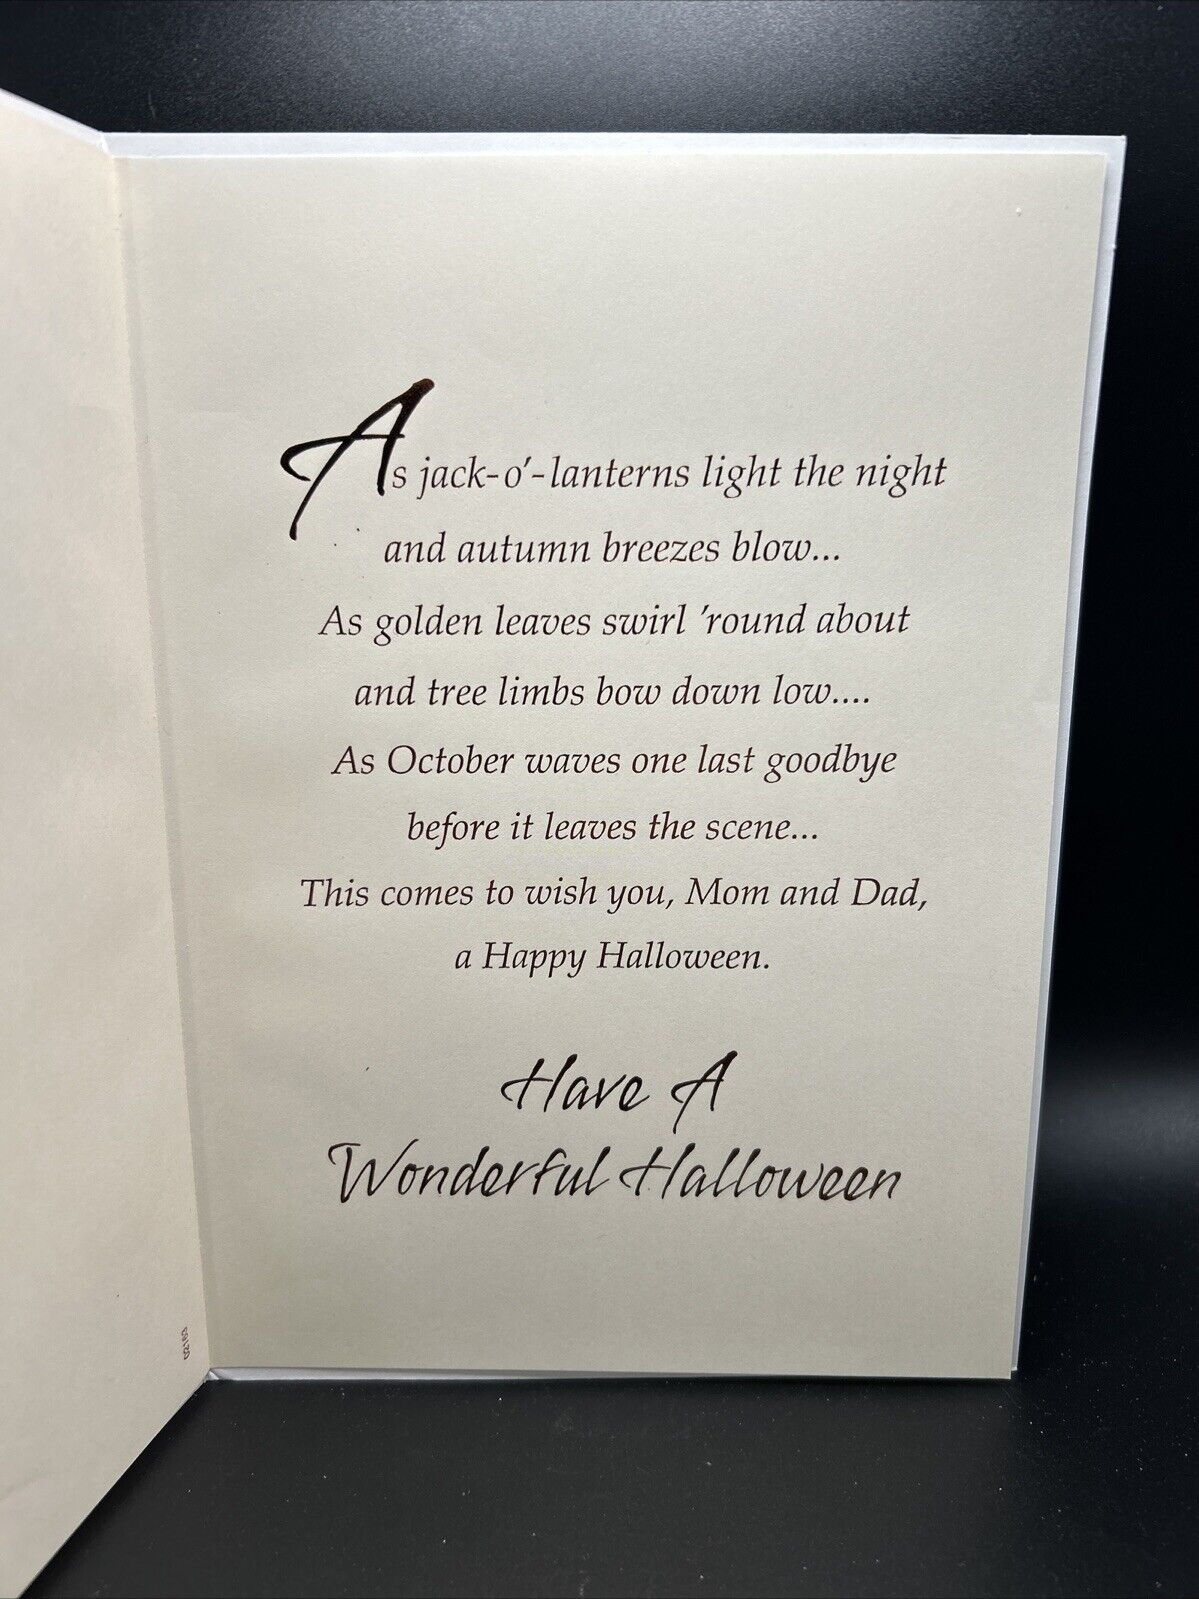 As jack-o'-lanterns light the night
and autumn breezes blow...
As golden leaves swirl 'round about
and tree limbs bow down low....
As October waves one last goodbye
before it leaves the scene...
This comes to wish you, Mom and Dad,
a Happy Halloween.
Have A
Wonderful Halloween